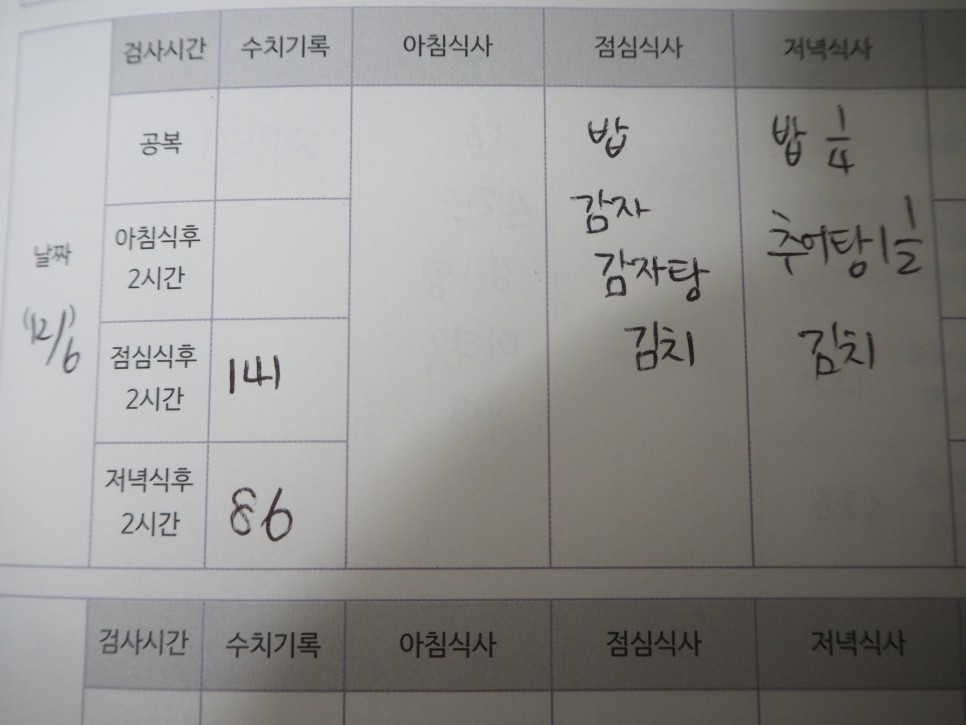 검사시간 수치기록 아침식사 점심식사 저녁식사
날짜
(12/6)
공복
아침식후
2시간
점심식후
2시간
141
저녁식후
2시간
86
밥
감자
감자탕
김치
밥 1/4
추어탕 1
김치
검사시간 수치기록 아침식사 점심식사 저녁식사